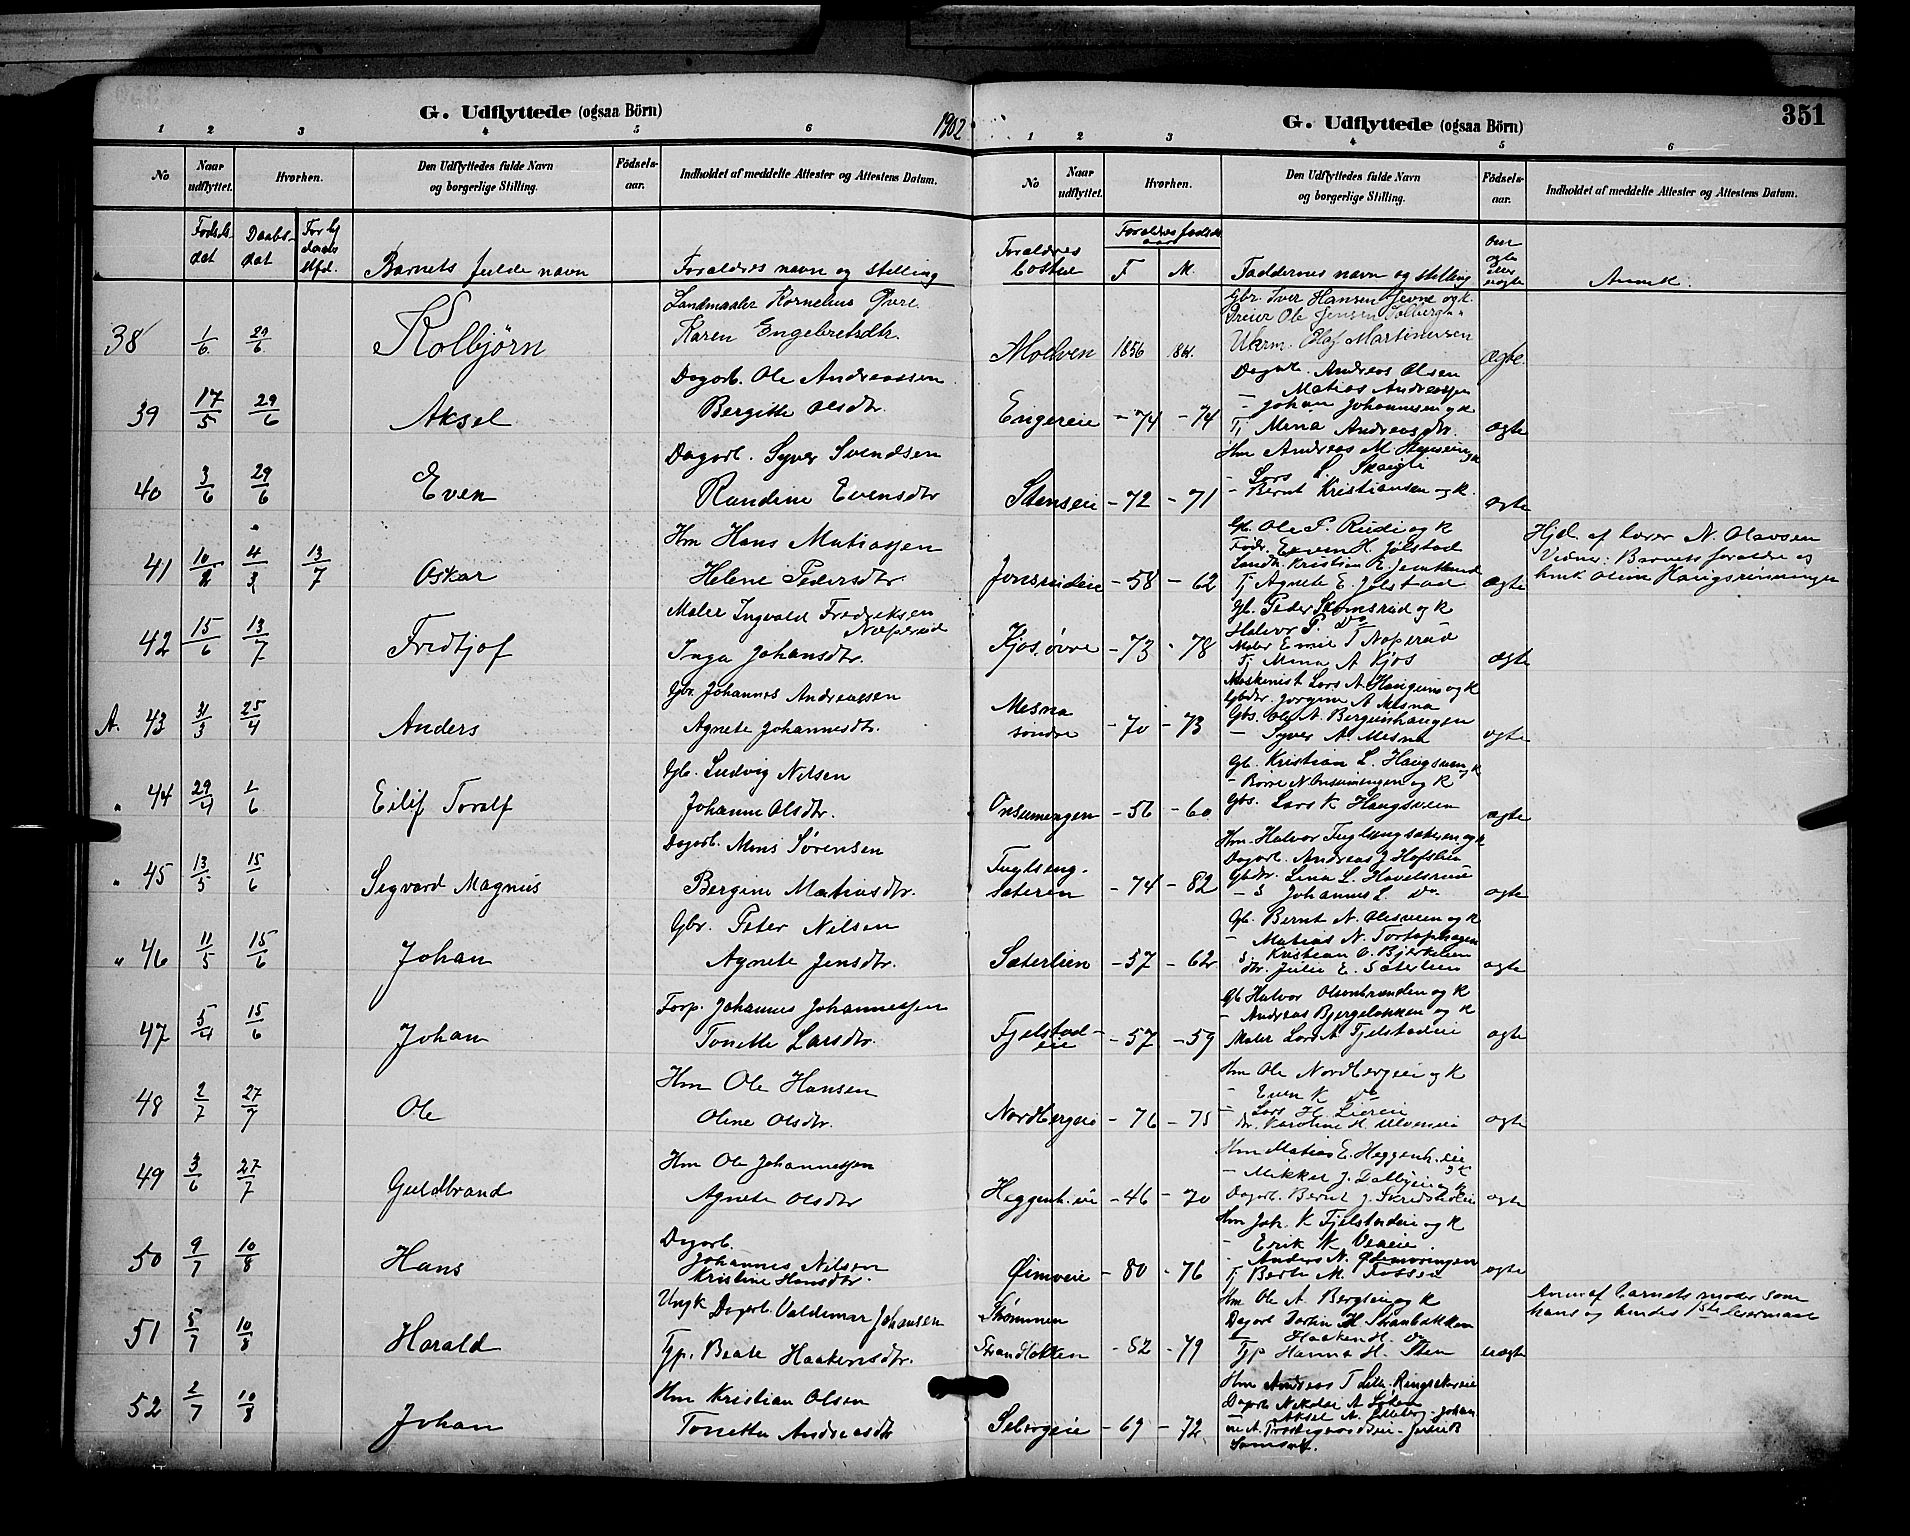 G. Udflyttede (ogsaa Börn)
1902
G. Udflyttede (ogsaa Börn)
351
1 2 3 4 5 6
1 2 3 4 5 6
No
Naar udflyttet.
Hvorhen.
Den Udflyttedes fulde Navn og borgerlige Stilling.
Födsels-aar.
Indholdet af meddelte Attester og Attestens Datum.
No
Naar udflyttet.
Hvorhen.
Den Udflyttedes fulde Navn og borgerlige Stilling.
Födsels-aar.
Indholdet af meddelte Attester og Attestens Datum.
Fødsels dat
Daabs-dat
Barnets fulde navn
Forældres navn og stilling
Forældres bosted
Forældres fødselsaar
F M.
Faddernes navn og stilling
om ægte eller uægte
Anmk.
38 1/6 29/6 Kolbjørn
Landmaaler Kornelius
Karen Engebretsdtr.
Moelven 1856 84.
Gbr. Iver Hansen Jevne og k.
Greier Ole Jensen Solberg
Ukrm. Olaf Martinussen
Ægte
39 17/5 29/6 Aksel
Dagarb. Ole Andreassen
Bergitte Olsdtr.
Engereie - 74 - 74
Dagarb. Andreas Olsen
- Matias Andreassen
- Johan Johannesen og k
Tj Mina Andreasdtr.
ægte
40 3/6 29/6 Even
Dagarb. Syver Svendsen
Randine Evensdtr
Stenseie - 72 - 71
Hm Andreas M Stenseie og k
- Lars S.
- Bernt Kristiansen og k.
ægte
41 10/2 4/3 13/7 Oskar
Hm Hans Matiassen
Helene Pedersdtr.
Jonsrudeie - 58 - 62
Gb. Ole P. Rudi og k
Fødr. Even H. Jølstad
Landh. Kristian E.
Tj Agnete E. Jølstad
ægte
Hjd. af lærer N. Olavsen
Vidner: Barnets forældre og
hmk Oline Haugsrønningen
42 15/6 13/7 Fredtjof
Maler Ingvald Fredriksen
Næperud
Inga Johansdtr.
Kjos, øvre - 73 - 78
Gb. Peder Stomsrud og k
Halvor P. Do
Maler Emil T Næperud
Tj Mina A Kjos
ægte
A. 43 31/3 25/4 Anders
Gbr. Johannes Andreassen
Agnete Johannesdtr.
Mesna
søndre - 70 - 73
Maskinist Lars A Haugum og k
Gbdtr. Jørgine A Mesna
Gbs. Ole A. Bergumshaugen
- Syver A. Mesna
ægte
" 44 29/4 1/6 Eilif Toralf
Gb. Ludvig Nilsen
Johanne Olsdtr.
Onsumengen - 56 - 60
Gb. Kristian L. Haugsveen og k
Gbs. Lars K Haugsveen
ægte
" 45 13/5 15/6 Sigvard Magnus
Dagarb. Mons Sørensen
Bergine Matiasdtr.
Fuglseng-
sæteren - 74 - 82
Hm. Halvor Fuglsengsæteren og k
Dagarb. Andreas J Hofslien
Gbdtr. Lina L.
- S Johannes L. Do
ægte
" 46 11/5 15/6 Johan
Gbr. Peter Nilsen
Agnete Jensdtr.
Sæterlien - 57 - 62
Gb. Bernt N. Olesveen og k
- Matias N. Tortophaugen
S. Kristian O. Bjerkelien
dtr. Julie E. Sæterlien
ægte
47 5/4 15/6 Johan
Forp. Johannes Johannessen
Tonette Larsdtr.
Fjelstad-
eie - 57 - 59
Gb Halvor Olsenbrænden og k
- Andreas Bjergeløkken og k
Maler Lars A Fjelstadeie
ægte
48 2/7 27/7 Ole
Hm Ole Hansen
Oline Olsdtr.
Nordbergeie - 76 - 75
Hm Ole Nordbergeie og k
- Even K Do
- Lars H. Liereie
dtr. Karoline H. Ulveneie
ægte
49 3/6 27/7 Guldbrand
Hm Ole Johannessen
Agnete Olsdtr
Heggenh. eie - 46 - 70
Hm Matias E. Heggenh. eie
- Mikkel J. Dalbyeie og k
Dagarb. Bernt J.
ægte
50 9/7 10/8 Hans
Dagarb.
Johannes Nilsen
Kristine Hansdtr.
Øimveie - 80 - 76
Hm Joh. K Fjelstadeie og k
- Erik N
- Anders N.
Tj Berte M. Fossen
ægte
51 5/7 10/8 Harald
Ungk Dagarb. Valdemar Johansen
Tjp. Beate Haakensdtr.
Strømmen
Strandløkken - 82 - 79
Hm Ole A. Bergseie og k
Dagarb H Strandbakken
- Haaken H. Do
Tjp Hanna H. Sten
uægte
Anm af barnets moder som
hans og hendes 1ste leiermaal
52 2/7 10/8 Johan
Hm Kristian Olsen
Tonette Andreasdtr
Sebergeie - 69 - 72
Hm Andreas T Lill. Ringsakereie
Dagarb Nikolai A
- Aksel A.